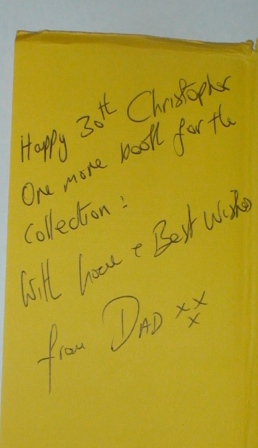 Happy 30th Christopher
One more book for the
Collection!
With Love & Best Wishes
from DAD xx
x